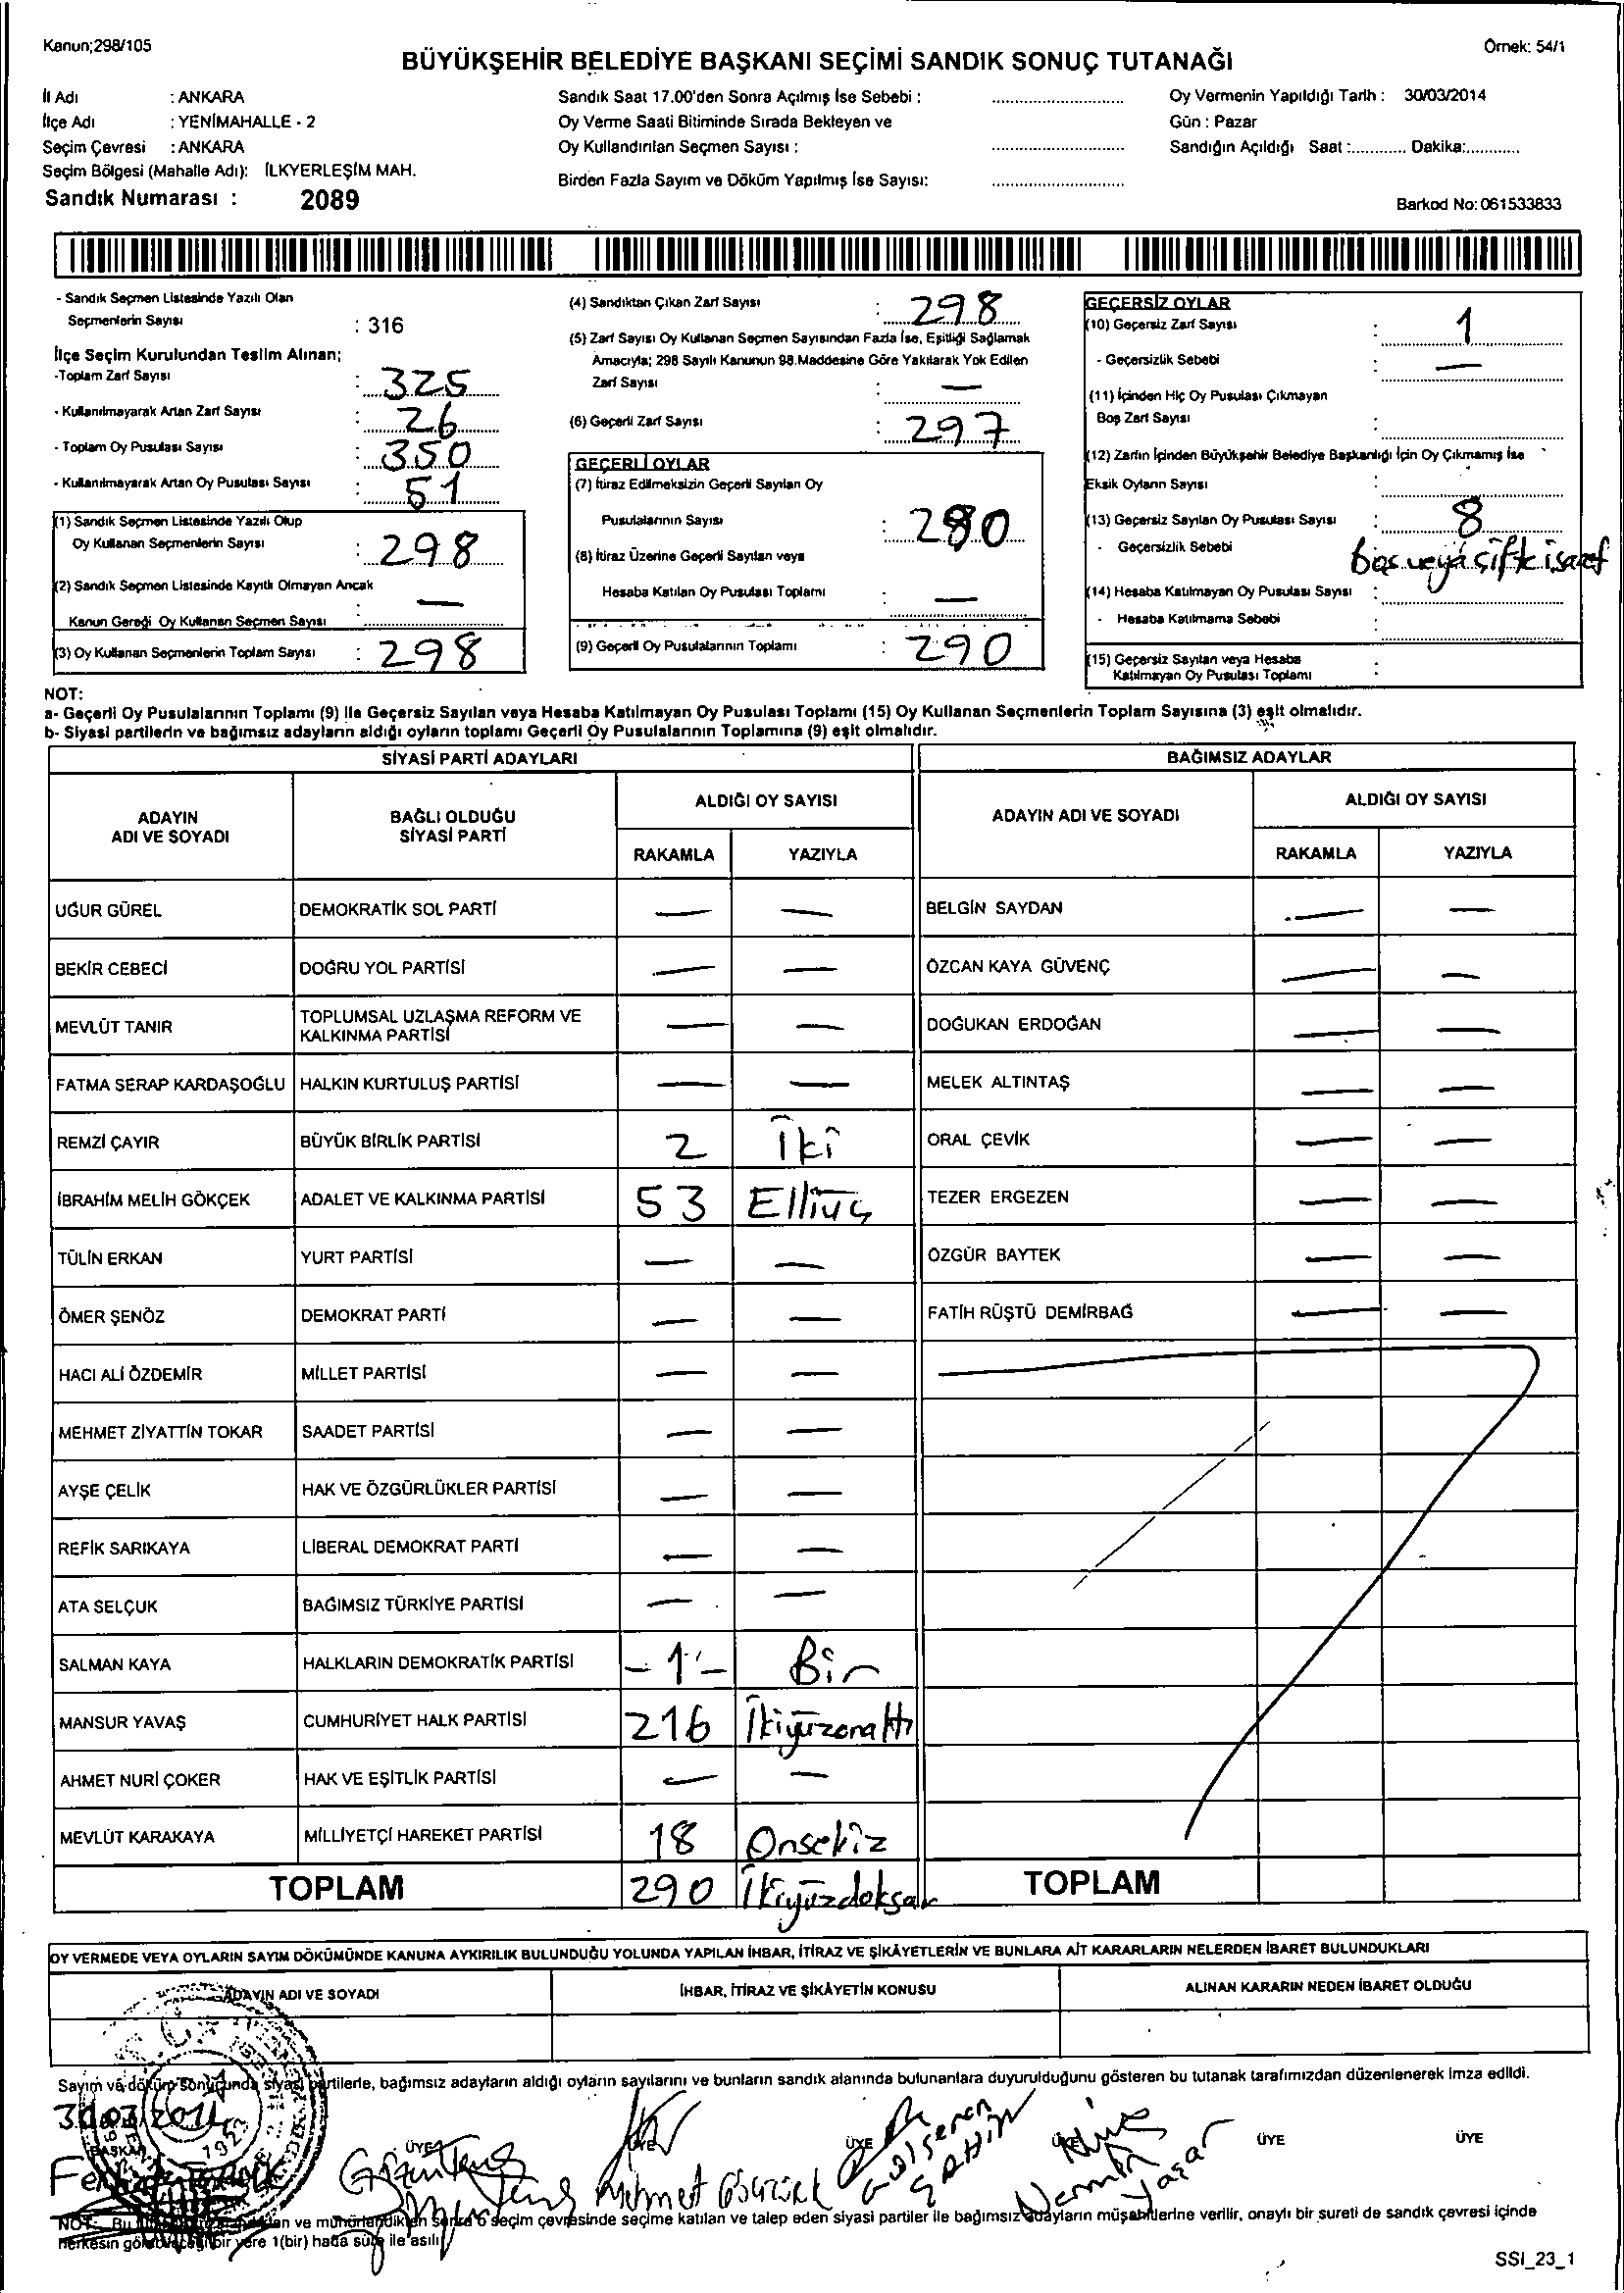 Kanun;298/105
Örnek: 54/1
BÜYÜKŞEHİR BELEDİYE BAŞKANI SEÇİMİ SANDIK SONUÇ TUTANAĞI
İl Adı : ANKARA
İlçe Adı : YENİMAHALLE - 2
Seçim Çevresi : ANKARA
Seçim Bölgesi (Mahalle Adı): İLKYERLEŞİM MAH.
Sandık Numarası : 2089
Sandık Saat 17.00'den Sonra Açılmış İse Sebebi :
Oy Verme Saati Bitiminde Sırada Bekleyen ve
Oy Kullandırılan Seçmen Sayısı :
Birden Fazla Sayım ve Döküm Yapılmış İse Sayısı:
Oy Vermenin Yapıldığı Tarih : 30/03/2014
Gün : Pazar
Sandığın Açıldığı Saat :............ Dakika:............
Barkod No: 061533833
- Sandık Seçmen Listesinde Yazılı Olan
Seçmenlerin Sayısı : 316
İlçe Seçim Kurulundan Teslim Alınan;
-Toplam Zarf Sayısı : 325
- Kullanılmayarak Artan Zarf Sayısı : 26
- Toplam Oy Pusulası Sayısı : 350
- Kullanılmayarak Artan Oy Pusulası Sayısı : 51
(1) Sandık Seçmen Listesinde Yazılı Olup
Oy Kullanan Seçmenlerin Sayısı : 298
(2) Sandık Seçmen Listesinde Kayıtlı Olmayan Ancak
Kanun Gereği Oy Kullanan Seçmen Sayısı : —
(3) Oy Kullanan Seçmenlerin Toplam Sayısı : 298
(4) Sandıktan Çıkan Zarf Sayısı : 298
(5) Zarf Sayısı Oy Kullanan Seçmen Sayısından Fazla İse, Eşitliği Sağlamak
Amacıyla; 298 Sayılı Kanunun 98.Maddesine Göre Yakılarak Yok Edilen
Zarf Sayısı : —
(6) Geçerli Zarf Sayısı : 297
GEÇERLİ OYLAR
(7) İtiraz Edilmeksizin Geçerli Sayılan Oy
Pusulalarının Sayısı : 290
(8) İtiraz Üzerine Geçerli Sayılan veya
Hesaba Katılan Oy Pusulası Toplamı : —
(9) Geçerli Oy Pusulalarının Toplamı : 290
GEÇERSİZ OYLAR
(10) Geçersiz Zarf Sayısı : 1
- Geçersizlik Sebebi : —
(11) İçinden Hiç Oy Pusulası Çıkmayan
Boş Zarf Sayısı :
(12) Zarfın İçinden Büyükşehir Belediye Başkanlığı İçin Oy Çıkmamış İse
Eksik Oyların Sayısı :
(13) Geçersiz Sayılan Oy Pusulası Sayısı : 8
- Geçersizlik Sebebi boş veya çifte işaret
(14) Hesaba Katılmayan Oy Pusulası Sayısı :
- Hesaba Katılmama Sebebi :
(15) Geçersiz Sayılan veya Hesaba
Katılmayan Oy Pusulası Toplamı :
NOT:
a- Geçerli Oy Pusulalarının Toplamı (9) ile Geçersiz Sayılan veya Hesaba Katılmayan Oy Pusulası Toplamı (15) Oy Kullanan Seçmenlerin Toplam Sayısına (3) eşit olmalıdır.
b- Siyasi partilerin ve bağımsız adayların aldığı oyların toplamı Geçerli Oy Pusulalarının Toplamına (9) eşit olmalıdır.
SİYASİ PARTİ ADAYLARI
BAĞIMSIZ ADAYLAR
ADAYIN ADI VE SOYADI
BAĞLI OLDUĞU SİYASİ PARTİ
ALDIĞI OY SAYISI
RAKAMLA YAZIYLA
ADAYIN ADI VE SOYADI
ALDIĞI OY SAYISI
RAKAMLA YAZIYLA
UĞUR GÜREL DEMOKRATİK SOL PARTİ — — BELGİN SAYDAN — —
BEKİR CEBECİ DOĞRU YOL PARTİSİ — — ÖZCAN KAYA GÜVENÇ — —
MEVLÜT TANIR TOPLUMSAL UZLAŞMA REFORM VE KALKINMA PARTİSİ — — DOĞUKAN ERDOĞAN — —
FATMA SERAP KARDAŞOĞLU HALKIN KURTULUŞ PARTİSİ — — MELEK ALTINTAŞ — —
REMZİ ÇAYIR BÜYÜK BİRLİK PARTİSİ 2 İki ORAL ÇEVİK — —
İBRAHİM MELİH GÖKÇEK ADALET VE KALKINMA PARTİSİ 53 Elliüç TEZER ERGEZEN — —
TÜLİN ERKAN YURT PARTİSİ — — ÖZGÜR BAYTEK — —
ÖMER ŞENÖZ DEMOKRAT PARTİ — — FATİH RÜŞTÜ DEMİRBAĞ — —
HACI ALİ ÖZDEMİR MİLLET PARTİSİ — —
MEHMET ZİYATTİN TOKAR SAADET PARTİSİ — —
AYŞE ÇELİK HAK VE ÖZGÜRLÜKLER PARTİSİ — —
REFİK SARIKAYA LİBERAL DEMOKRAT PARTİ — —
ATA SELÇUK BAĞIMSIZ TÜRKİYE PARTİSİ — —
SALMAN KAYA HALKLARIN DEMOKRATİK PARTİSİ - 1 - Bir
MANSUR YAVAŞ CUMHURİYET HALK PARTİSİ 216 İkiyüzonaltı
AHMET NURİ ÇOKER HAK VE EŞİTLİK PARTİSİ — —
MEVLÜT KARAKAYA MİLLİYETÇİ HAREKET PARTİSİ 18 Onsekiz
TOPLAM 290 İkiyüzdoksan TOPLAM
OY VERMEDE VEYA OYLARIN SAYIM DÖKÜMÜNDE KANUNA AYKIRILIK BULUNDUĞU YOLUNDA YAPILAN İHBAR, İTİRAZ VE ŞİKÂYETLERİN VE BUNLARA AİT KARARLARIN NELERDEN İBARET BULUNDUKLARI
ADAYIN ADI VE SOYADI
İHBAR, İTİRAZ VE ŞİKÂYETİN KONUSU
ALINAN KARARIN NEDEN İBARET OLDUĞU
Sayım ve döküm sonucunda siyasi partilerle, bağımsız adayların aldığı oyların sayılarını ve bunların sandık alanında bulunanlara duyurulduğunu gösteren bu tutanak tarafımızdan düzenlenerek imza edildi.
30.03.2014
BAŞKAN ÜYE ÜYE ÜYE ÜYE ÜYE ÜYE
Mehmet Gülseren Nermin Yaşar
NOT: Bu ve mühürlendikten sonra o seçim çevresinde seçime katılan ve talep eden siyasi partiler ile bağımsız adayların müşahitlerine verilir, onaylı bir sureti de sandık çevresi içinde
herkesin görebileceği bir yere 1(bir) hafta süre ile asılır
SSI_23_1